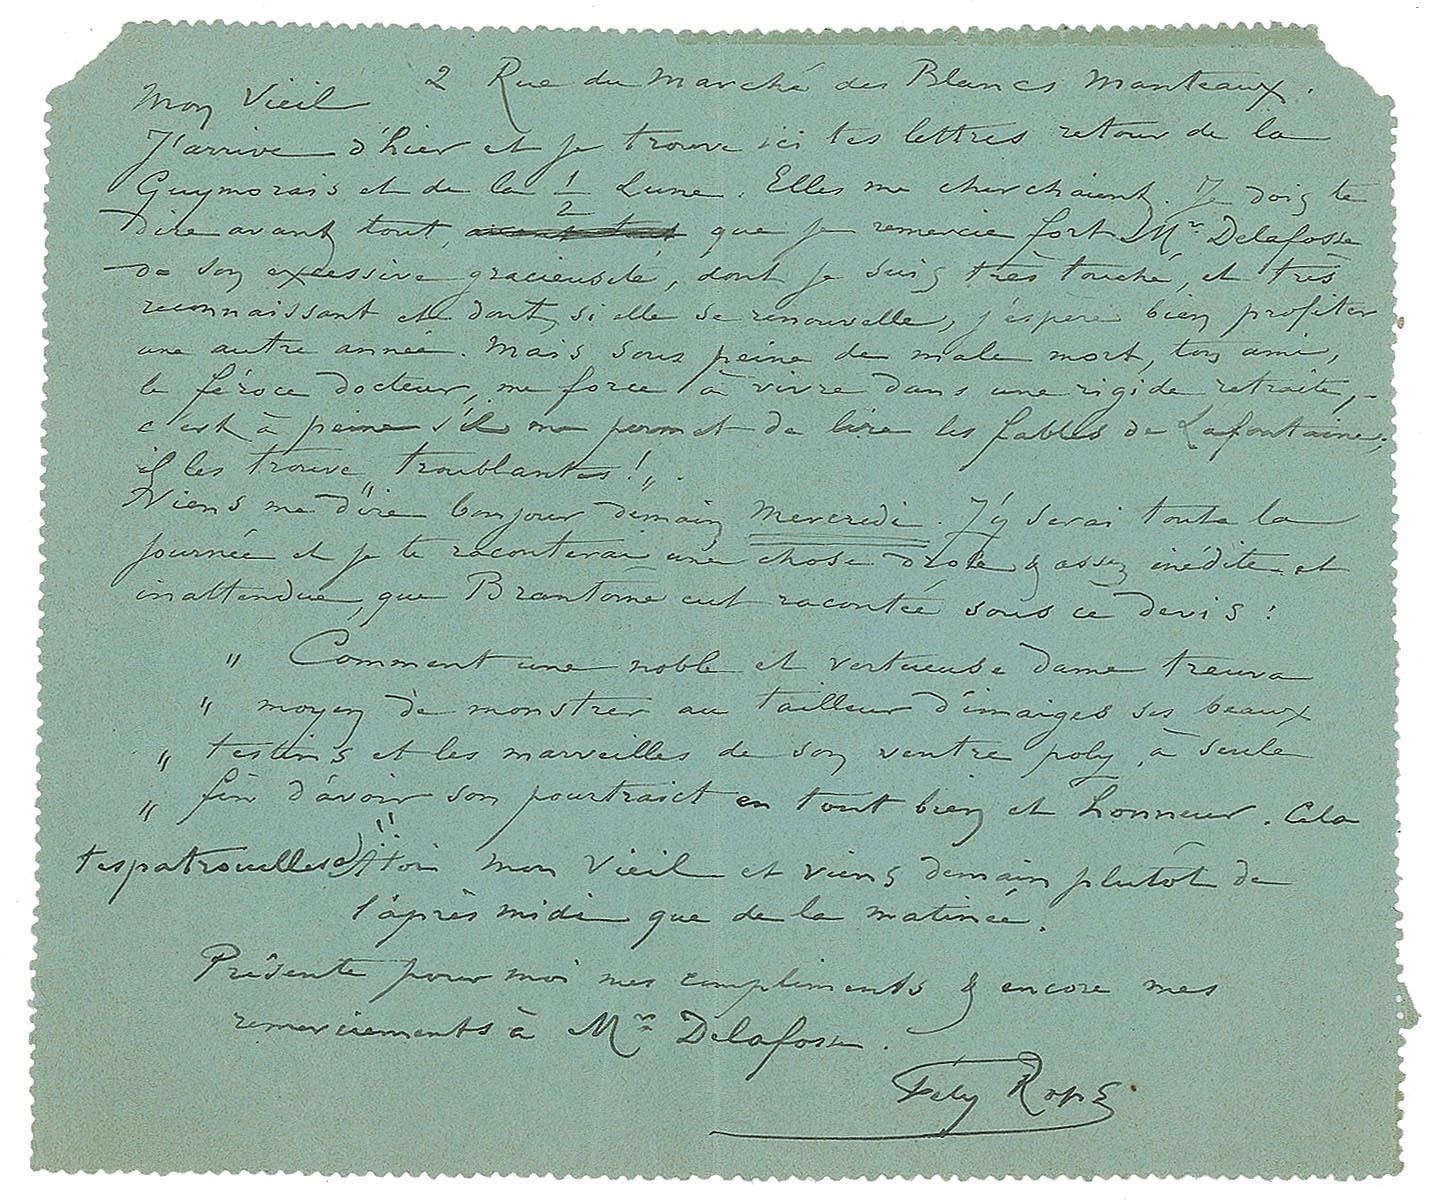 2 Rue du Marché des Blancs Manteaux.
Mon Vieil
J'arrive d'hier et je trouve ici tes lettres retour de la
Guymorais et de la 1/2 Lune. Elles me cherchaient. Je dois te
dire avant tout, avant tout que je remercie fort Mr Delafosse
de son excessive gracieuseté, dont je suis très touché, et très
reconnaissant et dont, si elle se renouvelle, j'espère bien profiter
une autre année. Mais sous peine de male mort, ton ami,
le féroce docteur, me force à vivre dans une rigide retraite, -
c'est à peine s'il me permet de lire les fables de Lafontaine;
il les trouve „troublantes!„.
Viens me dire bonjour demain Mercredi. J'y serai toute la
journée et je te raconterai une chose drôle & assez inédite et
inattendue, que Brantome eut racontée sous ce devis:
„ Comment une noble et vertueuse dame treuva
„ moyen de monstrer au tailleur d'imaiges ses beaux
„ testins et les marveilles de son ventre poly, à seule
„ fin d'avoir son pourtraict en tout bien et honneur. Cela
t'espatrouilles A toi mon Vieil et viens demain plutôt de
l'après midi que de la matinée.
Présente pour moi mes compliments & encore mes
remerciements à Mr Delafosse.
Fély Rops